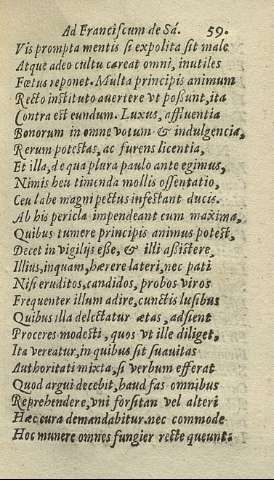 Ad Franciscum de Sá. 59.
Vis prompta mentis si expolita sit male
Atque adeo cultu careat omni, inutiles
Fœtus reponet. Multa principis animum
Recto instituto auertere vt possunt, ita
Contra est eundum. Luxus, affluentia
Bonorum in omne votum & indulgencia,
Rerum potestas, ac furens licentia,
Et illa, de qua plura paulo ante egimus,
Nimis heu timenda mollis ostentatio,
Ceu labe magni pectus infestant ducis.
Ab his pericla impendeant cum maxima,
Quibus tumere principis animus potest,
Decet in vigilijs esse, & illi assistere,
Illius, inquam, hærere lateri, nec pati
Nisi eruditos, candidos, probos viros
Frequenter illum adire, cunctis lusibus
Quibus illa delectatur ætas, adsient
Proceres modesti, quos vt ille diliget,
Ita vereatur, in quibus sit suauitas
Authoritati mixta, si verbum efferat
Quod argui decebit, haud fas omnibus
Reprehendere, vni forsitan vel alteri
Hæc cura demandabitur, nec commode
Hoc munere omnes fungier recte queunt.